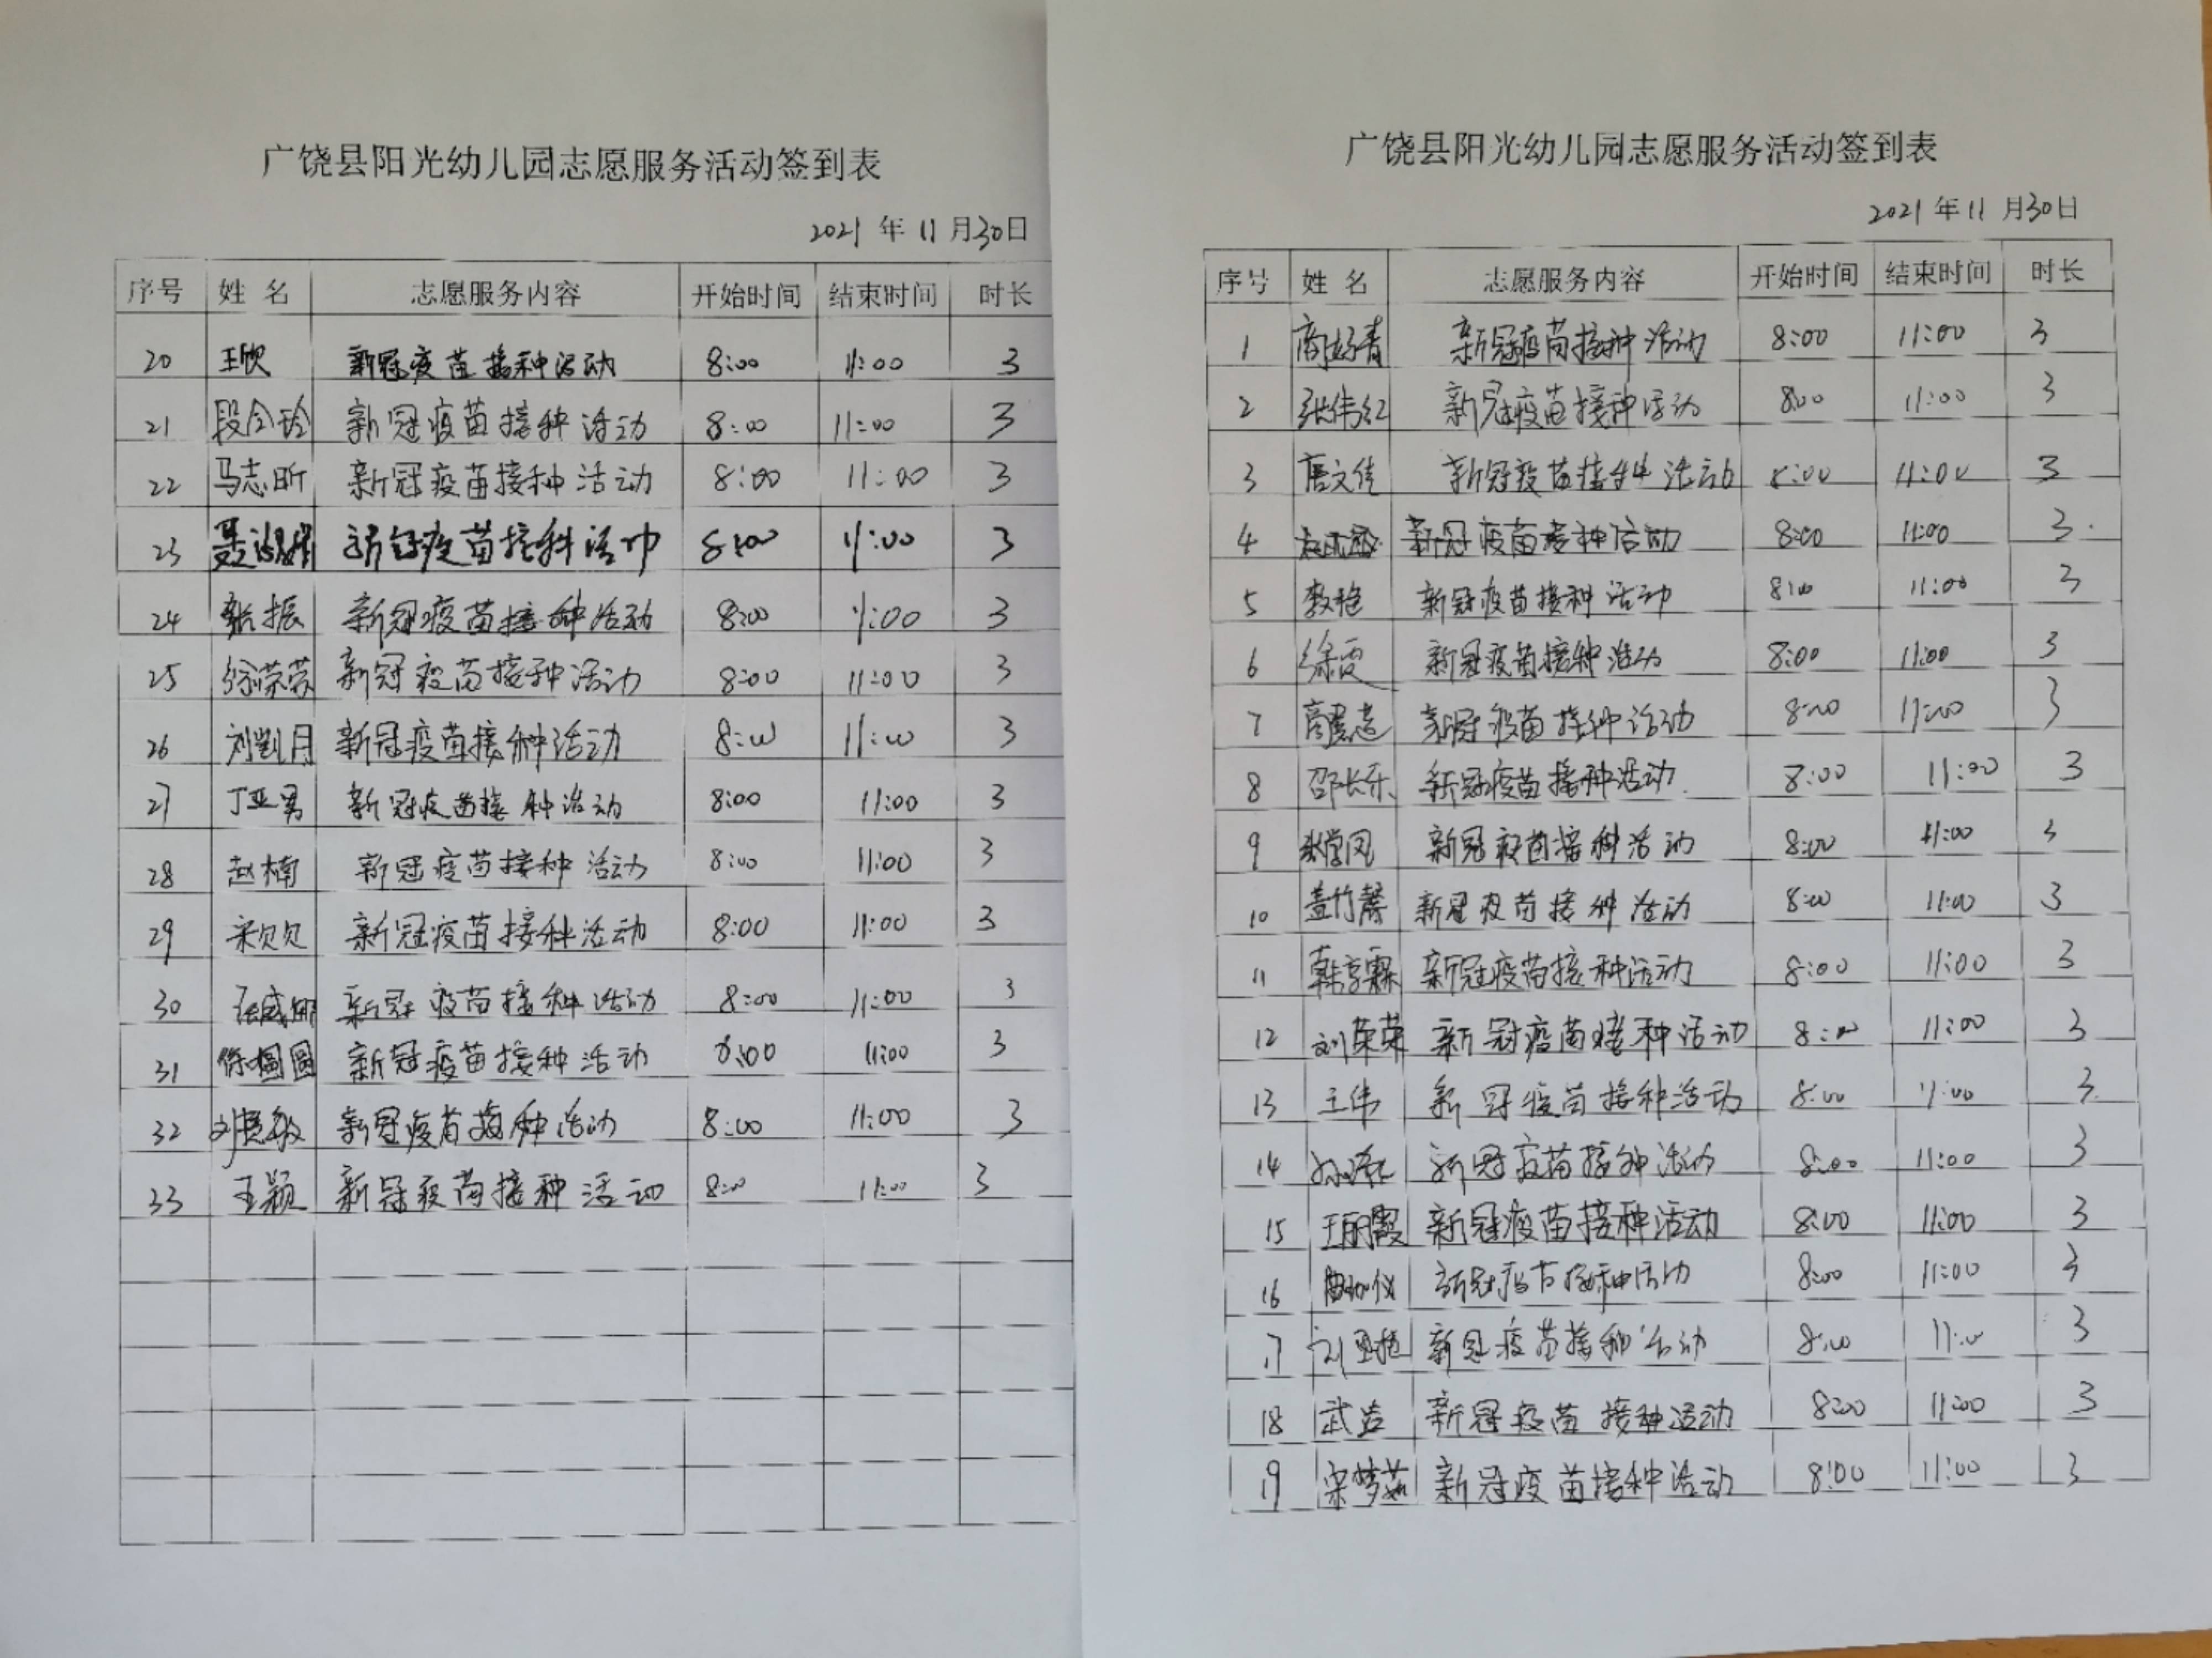 广饶县阳光幼儿园志愿服务活动签到表
2021 年 11 月30日
序号 姓 名 志愿服务内容 开始时间 结束时间 时长
20 王欣 新冠疫苗接种活动 8:00 11:00 3
21 段令玲 新冠疫苗接种活动 8:00 11:00 3
22 马志昕 新冠疫苗接种活动 8:00 11:00 3
23 新冠疫苗接种活动 8:00 11:00 3
24 张振 新冠疫苗接种活动 8:00 11:00 3
25 徐荣荣 新冠疫苗接种活动 8:00 11:00 3
26 刘凯月 新冠疫苗接种活动 8:00 11:00 3
27 丁亚男 新冠疫苗接种活动 8:00 11:00 3
28 赵楠 新冠疫苗接种活动 8:00 11:00 3
29 宋欠欠 新冠疫苗接种活动 8:00 11:00 3
30 新冠疫苗接种活动 8:00 11:00 3
31 新冠疫苗接种活动 8:00 11:00 3
32 新冠疫苗接种活动 8:00 11:00 3
33 王颖 新冠疫苗接种活动 8:00 11:00 3
广饶县阳光幼儿园志愿服务活动签到表
2021 年 11 月30日
序号 姓 名 志愿服务内容 开始时间 结束时间 时长
1 商好青 新冠疫苗接种活动 8:00 11:00 3
2 张伟红 新冠疫苗接种活动 8:00 11:00 3
3 唐文佳 新冠疫苗接种活动 8:00 11:00 3
4 新冠疫苗接种活动 8:00 11:00 3
5 新冠疫苗接种活动 8:00 11:00 3
6 徐霞 新冠疫苗接种活动 8:00 11:00 3
7 新冠疫苗接种活动 8:00 11:00 3
8 邵长乐 新冠疫苗接种活动 8:00 11:00 3
9 张学凤 新冠疫苗接种活动 8:00 11:00 3
10 盖竹馨 新冠疫苗接种活动 8:00 11:00 3
11 韩京霖 新冠疫苗接种活动 8:00 11:00 3
12 刘荣荣 新冠疫苗接种活动 8:00 11:00 3
13 王伟 新冠疫苗接种活动 8:00 11:00 3
14 新冠疫苗接种活动 8:00 11:00 3
15 王丽霞 新冠疫苗接种活动 8:00 11:00 3
16 新冠疫苗接种活动 8:00 11:00 3
17 新冠疫苗接种活动 8:00 11:00 3
18 新冠疫苗接种活动 8:00 11:00 3
19 宋梦茹 新冠疫苗接种活动 8:00 11:00 3